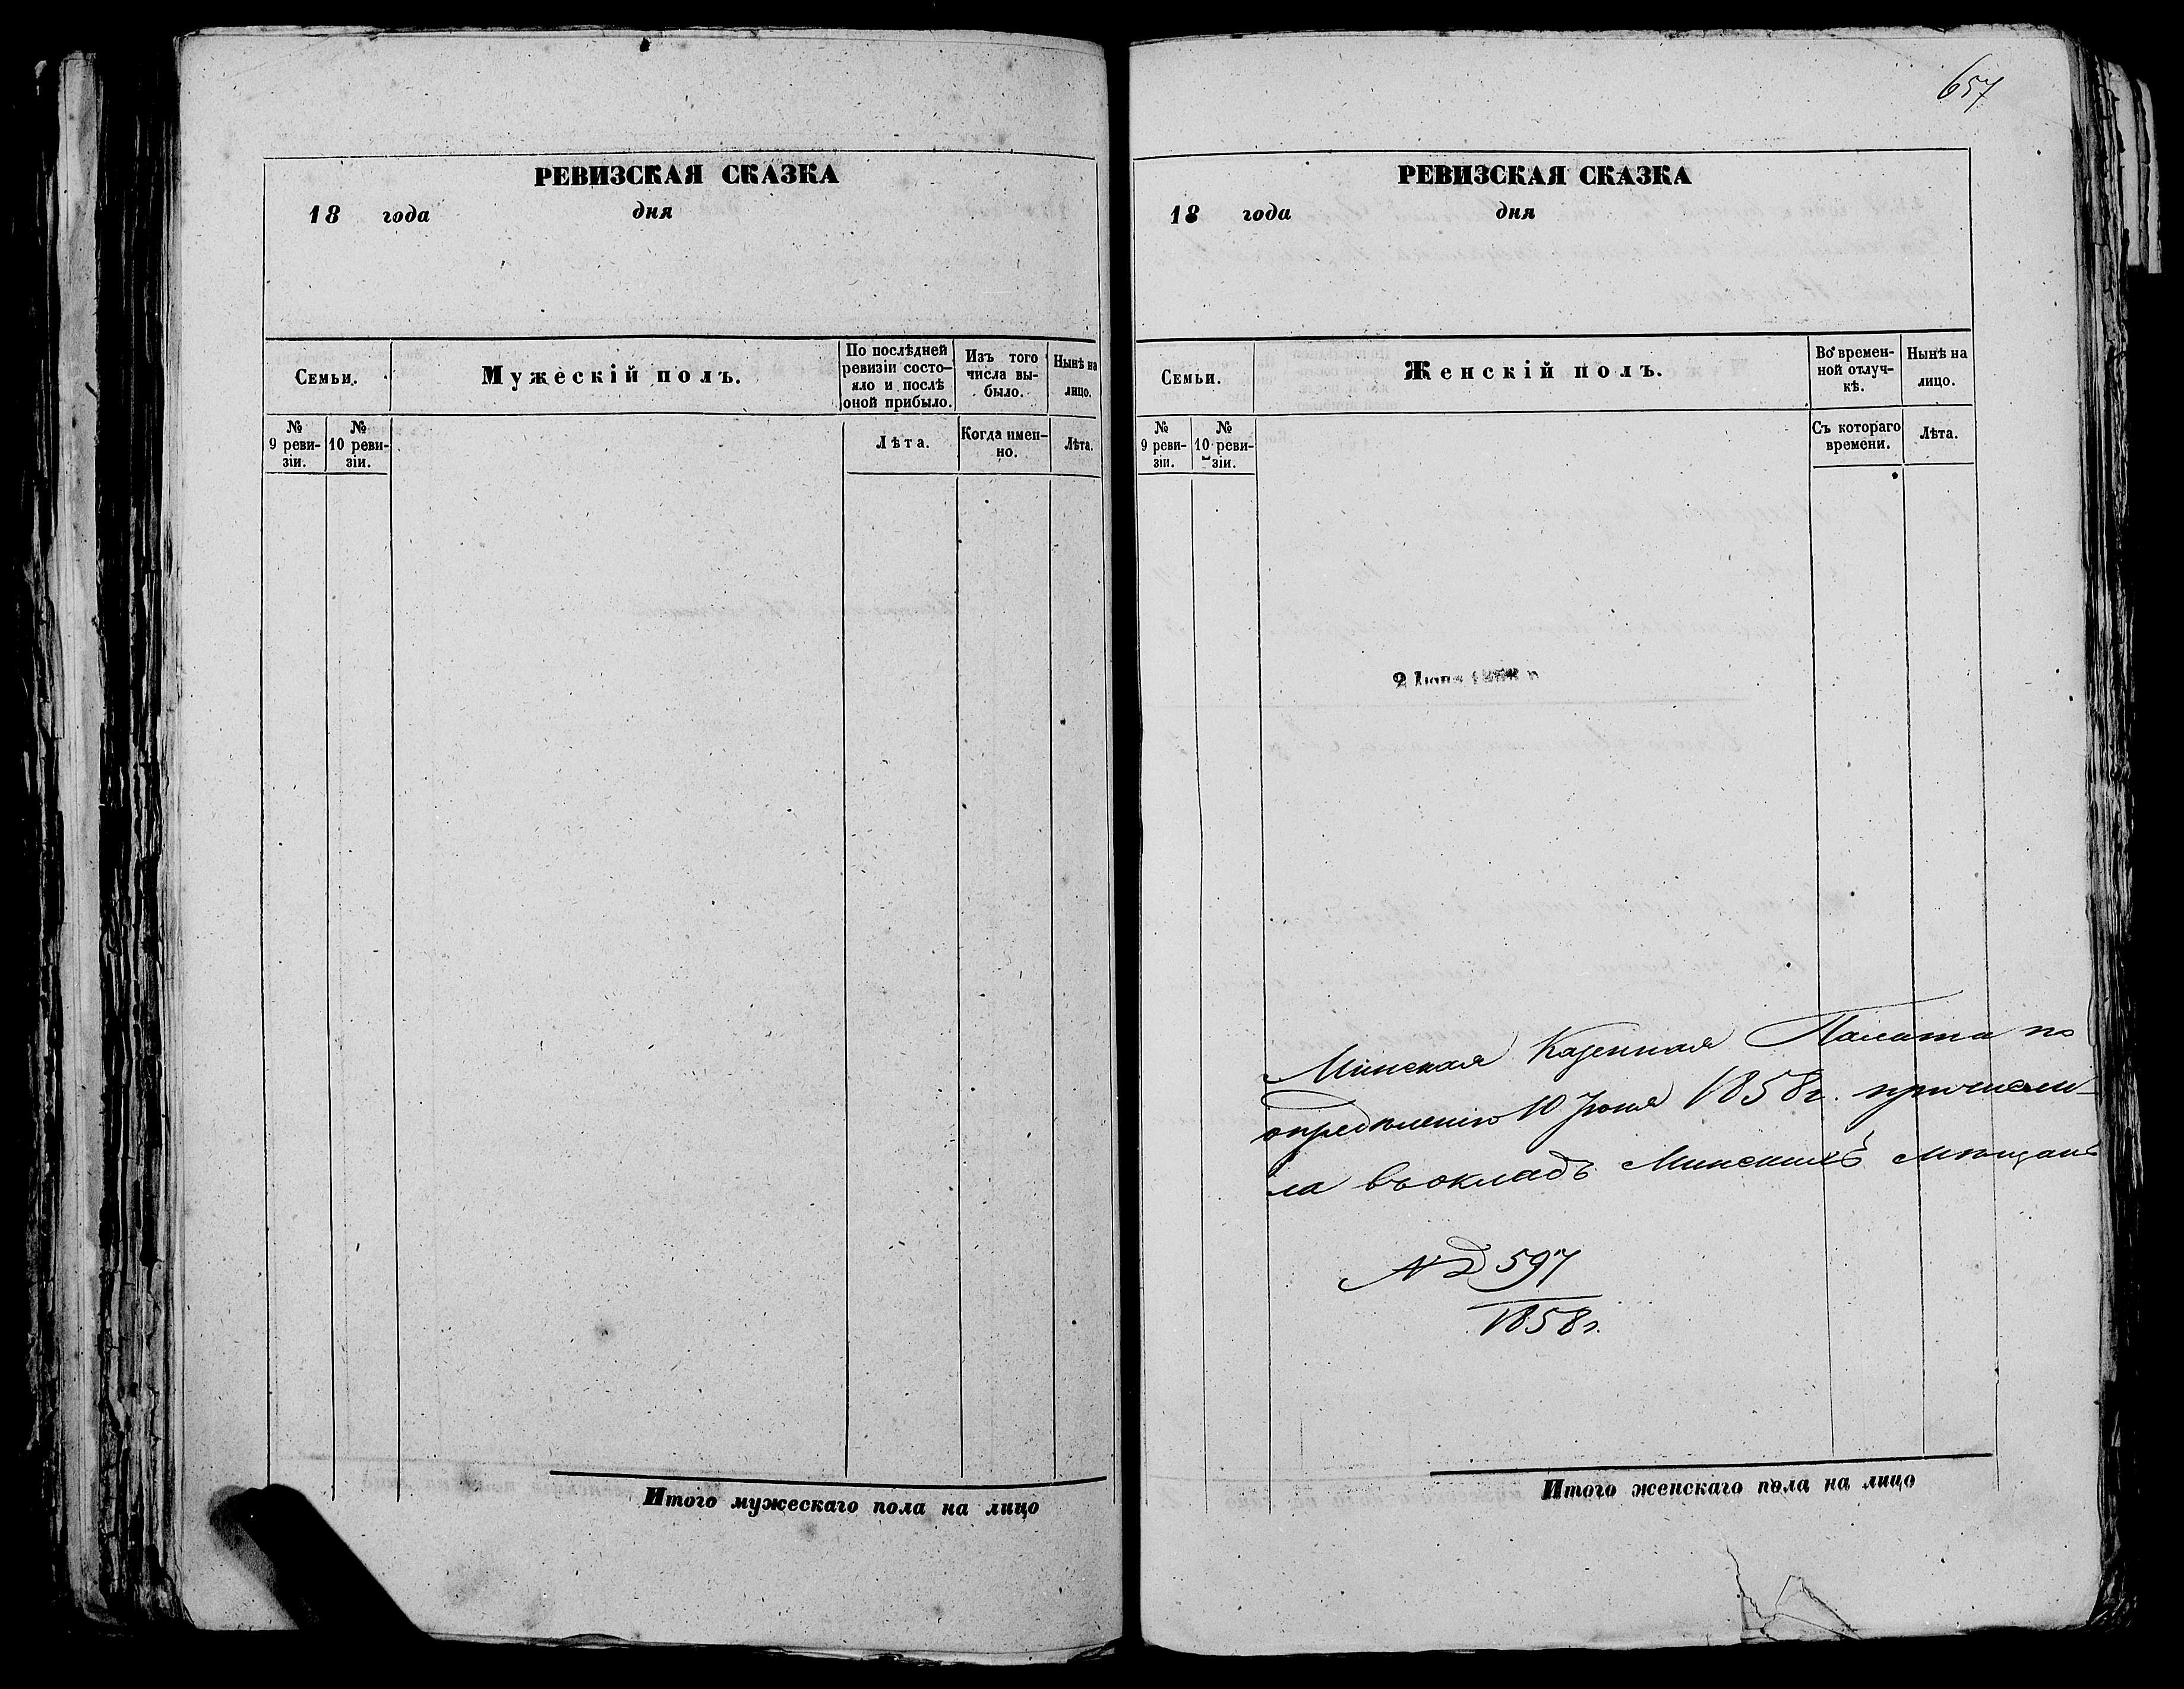 РЕВИЗСКАЯ СКАЗКА
18 года дня
Семьи.
Мужескій полъ.
По послѣдней
ревизіи состо-
яло и послѣ
оной прибыло.
Изъ того
числа вы-
было.
Нынѣ на
лицо.
№
9 реви-
зіи.
№
10 реви-
зіи.
Лѣта.
Когда имен-
но.
Лѣта.
Итого мужескаго пола на лицо
657
РЕВИЗСКАЯ СКАЗКА
18 года дня
Семьи.
Женскій полъ.
Во времен-
ной отлуч-
кѣ.
Нынѣ на
лицо.
№
9 реви-
зіи.
№
10 реви-
зіи.
Съ котораго
времени.
Лѣта.
2
Минская Казенная Палата по
опредѣленію 10 Іюня 1858 г. причисли-
ла въ окладъ Минскихъ мѣщанъ
№ 597
1858 г.
Итого женскаго пола на лицо